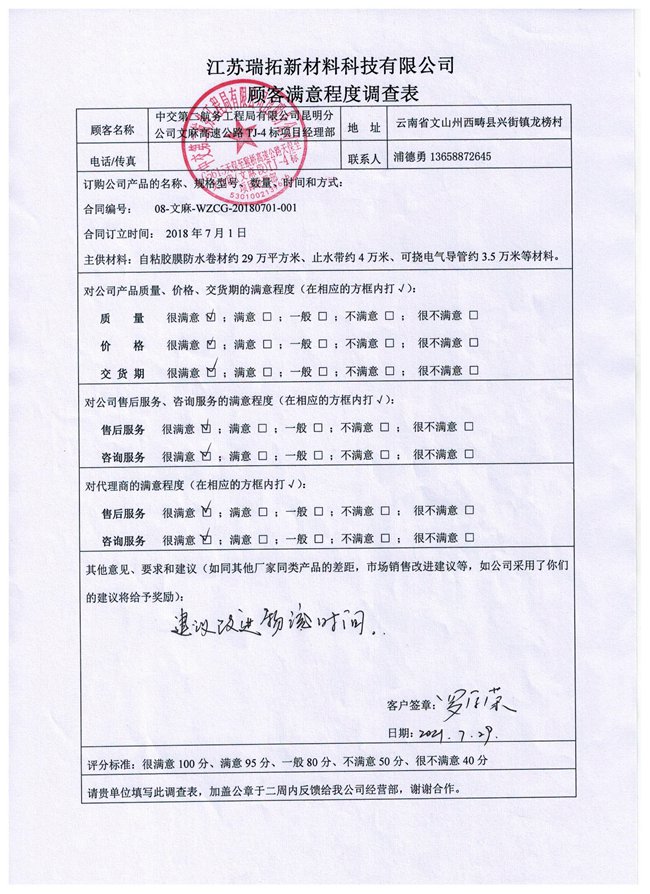 江苏瑞拓新材料科技有限公司
顾客满意程度调查表
顾客名称
中交第二航务工程局有限公司昆明分
公司文麻高速公路 TJ-4 标项目经理部
地 址
云南省文山州西畴县兴街镇龙榜村
电话/传真
联系人
浦德勇 13658872645
订购公司产品的名称、规格型号、数量、时间和方式：
合同编号： 08-文麻-WZCG-20180701-001
合同订立时间： 2018 年 7 月 1 日
主供材料：自粘胶膜防水卷材约 29 万平方米、止水带约 4 万米、可挠电气导管约 3.5 万米等材料。
对公司产品质量、价格、交货期的满意程度（在相应的方框内打 √）：
质 量 很满意 ☑；满意 □；一般 □；不满意 □； 很不满意 □
价 格 很满意 ☑；满意 □；一般 □；不满意 □； 很不满意 □
交 货 期 很满意 ☑；满意 □；一般 □；不满意 □； 很不满意 □
对公司售后服务、咨询服务的满意程度（在相应的方框内打 √）：
售后服务 很满意 ☑；满意 □；一般 □；不满意 □； 很不满意 □
咨询服务 很满意 ☑；满意 □；一般 □；不满意 □； 很不满意 □
对代理商的满意程度（在相应的方框内打 √）：
售后服务 很满意 ☑；满意 □；一般 □；不满意 □； 很不满意 □
咨询服务 很满意 ☑；满意 □；一般 □；不满意 □； 很不满意 □
其他意见、要求和建议（如同其他厂家同类产品的差距，市场销售改进建议等，如公司采用了你们
的建议将给予奖励）：
建议改进物流时间..
客户签章：
日期：2021.7.29.
评分标准：很满意 100 分、满意 95 分、一般 80 分、不满意 50 分、很不满意 40 分
请贵单位填写此调查表，加盖公章于二周内反馈给我公司经营部，谢谢合作。